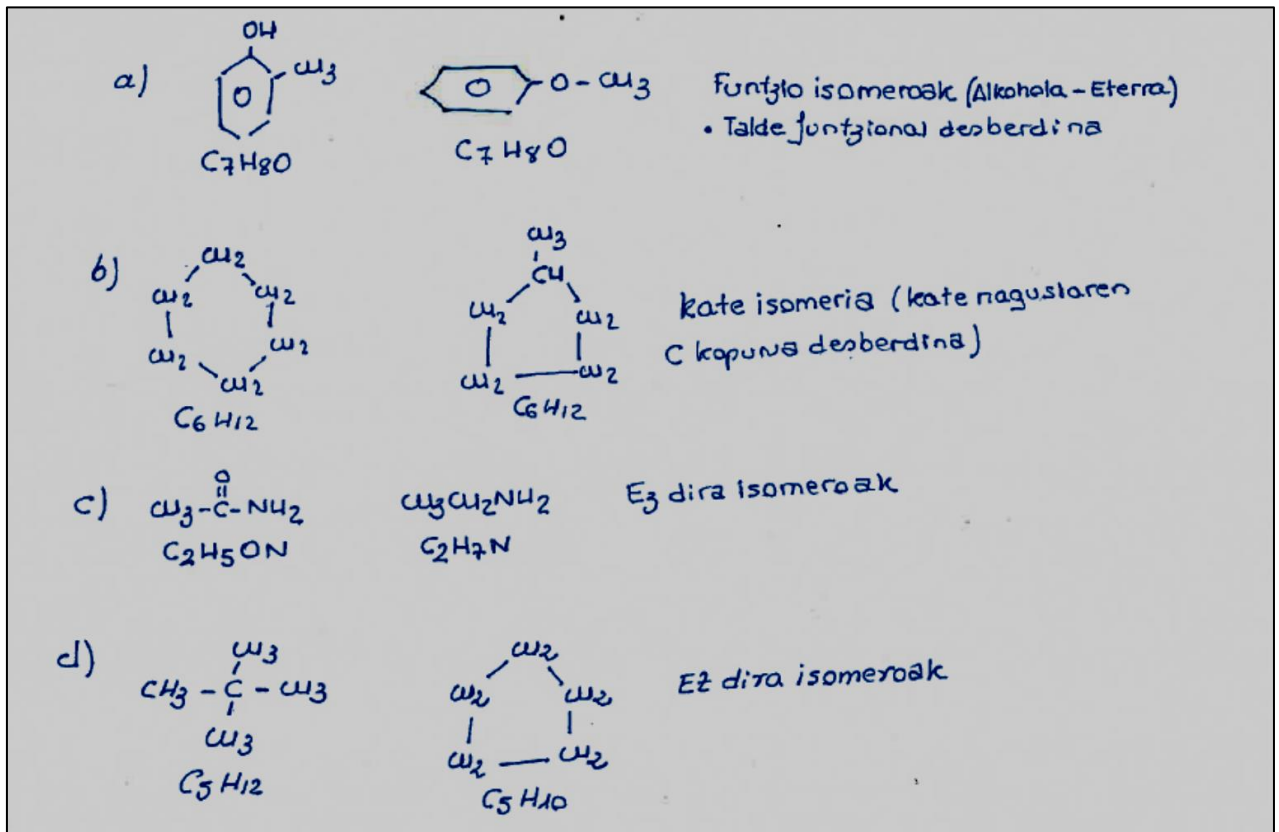 a)
OH
CH3
O
C7H8O
O
O - CH3
C7H8O
Funtzio isomeroak (Alkohola - Eterra)
• Talde funtzional desberdina
b)
CH2
CH2
CH2
CH2
CH2
CH2
C6H12
CH3
CH
CH2
CH2
CH2
CH2
C6H12
Kate isomeria (kate nagusiaren
C kopurua desberdina)
c)
O
CH3-C-NH2
C2H5ON
CH3CH2NH2
C2H7N
Ez dira isomeroak
d)
CH3
CH3 - C - CH3
CH3
C5H12
CH2
CH2
CH2
CH2
CH2
C5H10
Ez dira isomeroak